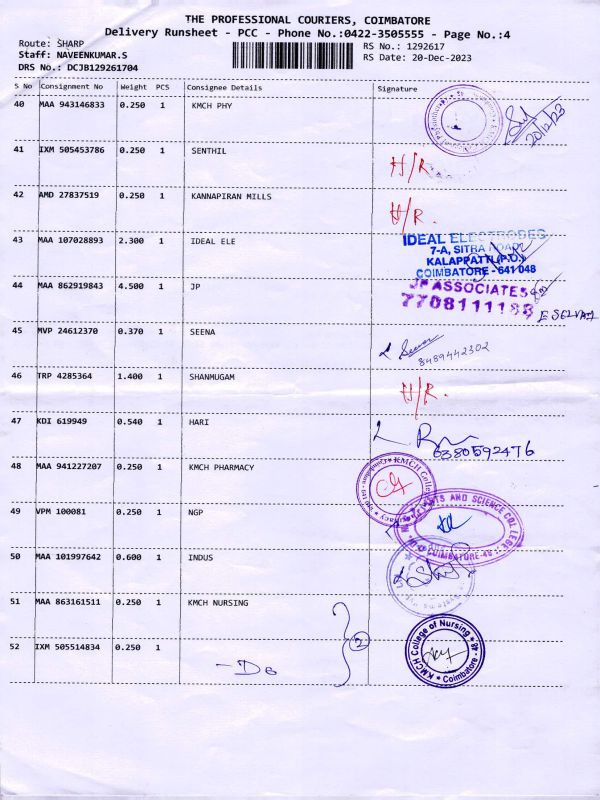 THE PROFESSIONAL COURIERS, COIMBATORE
Delivery Runsheet - PCC - Phone No.:0422-3505555 - Page No.:4
Route: SHARP
RS No.: 1292617
Staff: NAVEENKUMAR.S
RS Date: 20-Dec-2023
DRS No.: DCJB129261704
S No Consignment No Weight PCS Consignee Details Signature
40 MAA 943146833 0.250 1 KMCH PHY
20/12/23
41 IXM 505453786 0.250 1 SENTHIL
H/R.
42 AMD 27837519 0.250 1 KANNAPIRAN MILLS
H/R.
43 MAA 107028893 2.300 1 IDEAL ELE
IDEAL ELECTRODES
7-A, SITRA ROAD,
KALAPPATTI (P.O.)
COIMBATORE - 641 048
44 MAA 862919843 4.500 1 JP
JP ASSOCIATES
7708111188
45 MVP 24612370 0.370 1 SEENA
8489442302
46 TRP 4285364 1.400 1 SHANMUGAM
H/R.
47 KDI 619949 0.540 1 HARI
6380592476
48 MAA 941227207 0.250 1 KMCH PHARMACY
KMCH College
49 VPM 100081 0.250 1 NGP
ARTS AND SCIENCE COLLEGE
COIMBATORE-48
50 MAA 101997642 0.600 1 INDUS
51 MAA 863161511 0.250 1 KMCH NURSING
2
52 IXM 505514834 0.250 1
- Do
KMCH College of Nursing
Coimbatore - 48